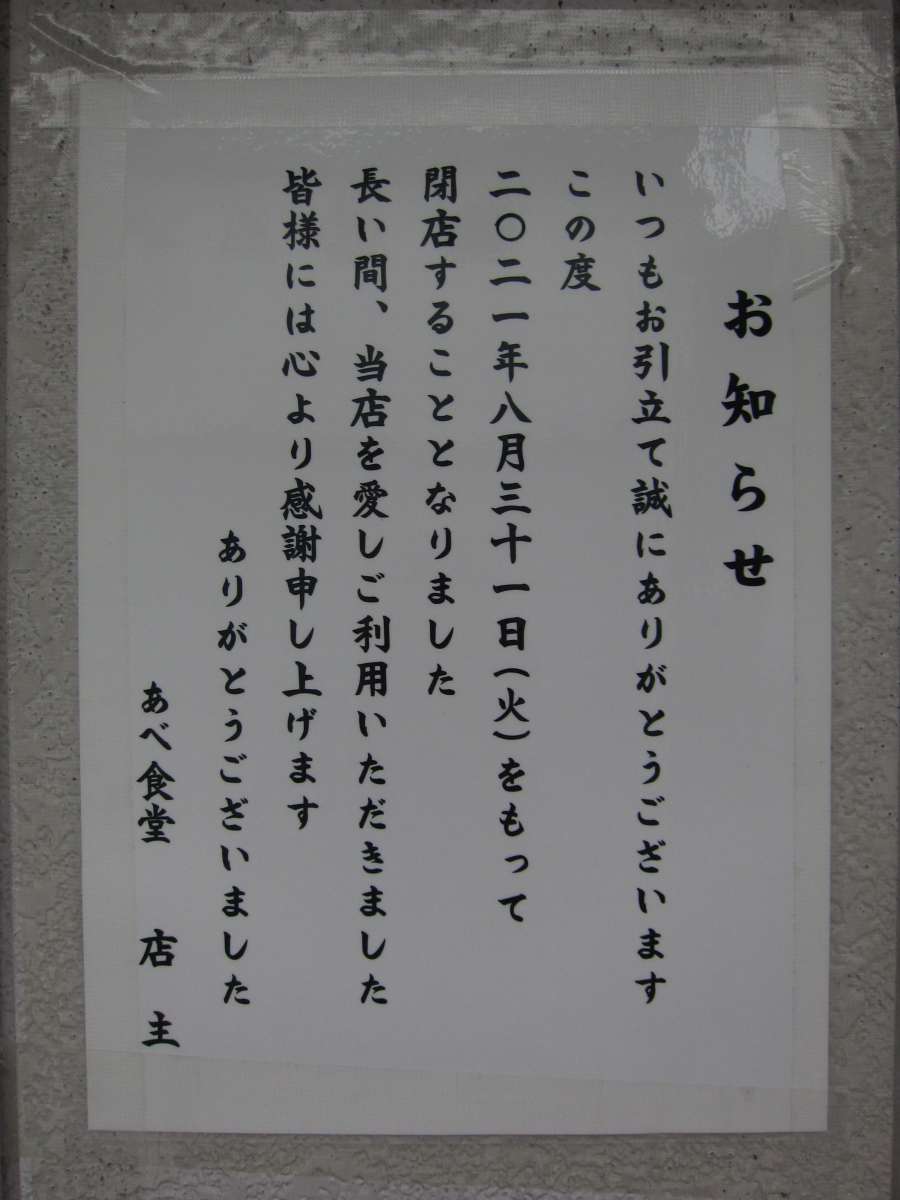 お知らせ
いつもお引立て誠にありがとうございます
この度
二〇二一年八月三十一日(火)をもって
閉店することとなりました
長い間、当店を愛しご利用いただきました
皆様には心より感謝申し上げます
ありがとうございました
あべ食堂 店主